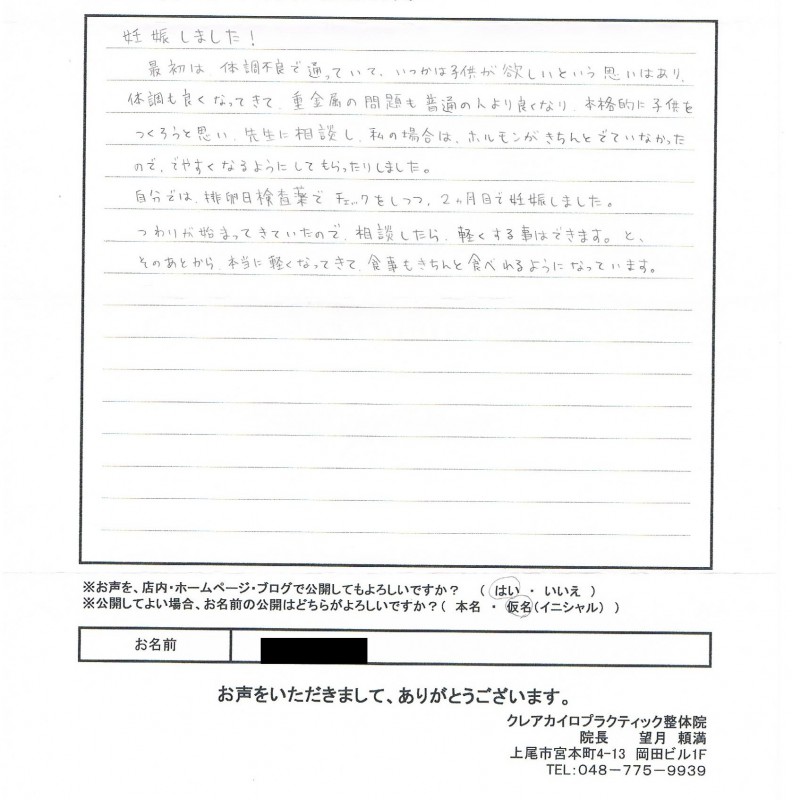 妊娠しました！
最初は、体調不良で通っていて、いつかは子供が欲しいという思いはあり、
体調も良くなってきて、重金属の問題も普通の人より良くなり、本格的に子供を
つくろうと思い、先生に相談し、私の場合は、ホルモンがきちんとでていなかった
ので、でやすくなるようにしてもらったりしました。
自分では、排卵日検査薬でチェックをしつつ、2ヶ月目で妊娠しました。
つわりが始まってきていたので、相談したら、軽くする事はできます。と、
そのあとから、本当に軽くなってきて、食事もきちんと食べれるようになっています。
※お声を、店内・ホームページ・ブログで公開してもよろしいですか？ （ はい ・ いいえ ）
※公開してよい場合、お名前の公開はどちらがよろしいですか？（ 本名 ・ 仮名（イニシャル） ）
お名前
お声をいただきまして、ありがとうございます。
クレアカイロプラクティック整体院
院長 望月 頼満
上尾市宮本町4-13 岡田ビル1F
TEL：048-775-9939